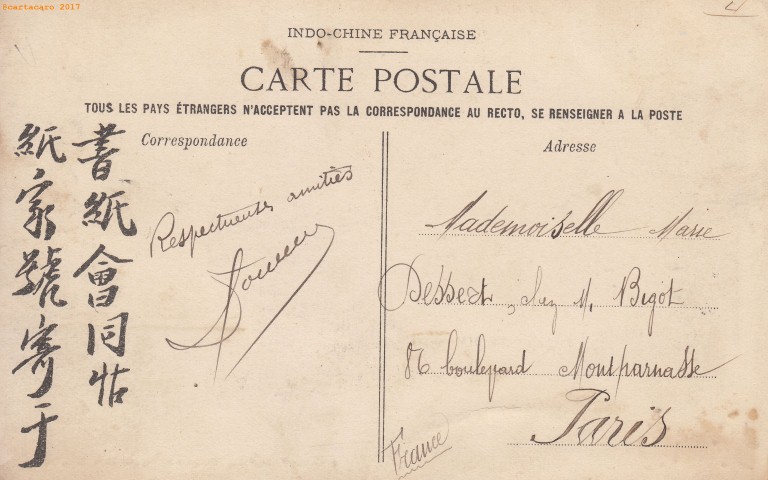 ©cartacaro 2017
INDO-CHINE FRANÇAISE
CARTE POSTALE
TOUS LES PAYS ÉTRANGERS N'ACCEPTENT PAS LA CORRESPONDANCE AU RECTO, SE RENSEIGNER A LA POSTE
Correspondance
Adresse
書紙會同怗
紙家號寄于
Respectueuses amitiés
Mademoiselle Marie
Dessert, chez M. Bigot
86 boulevard Montparnasse
Paris
France